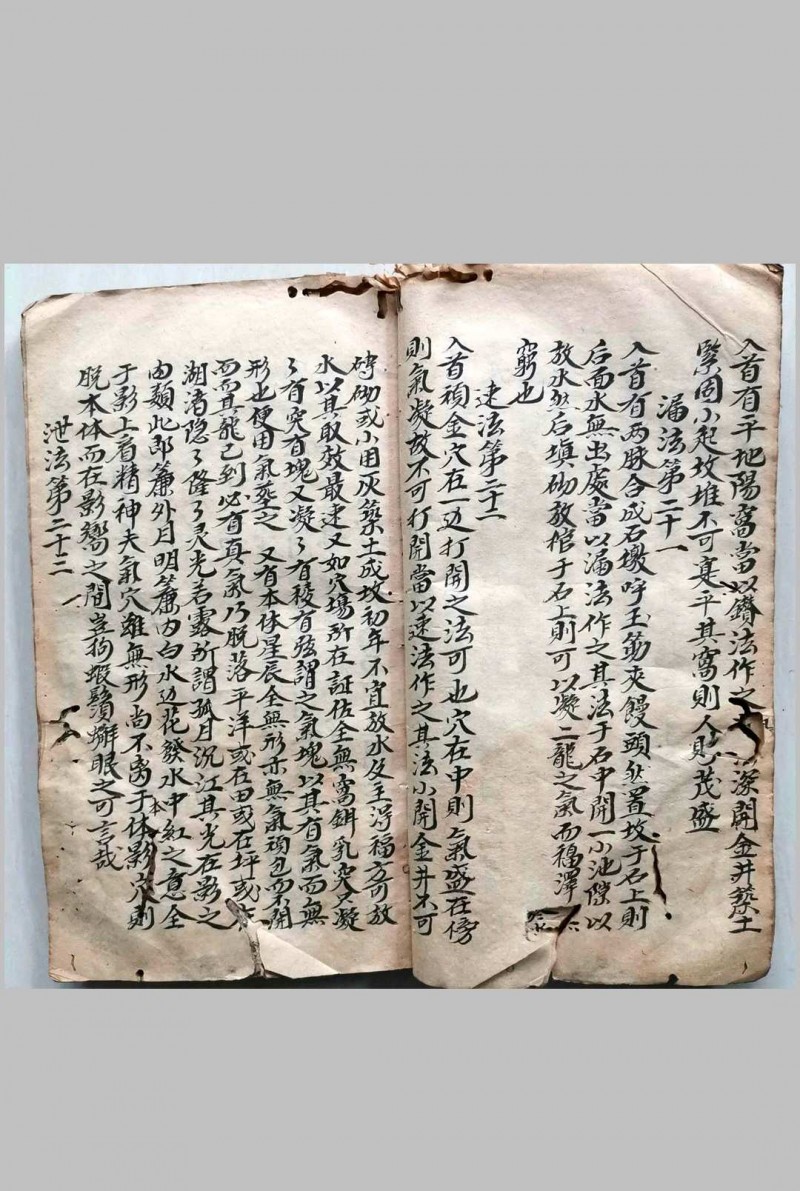 入首有平地陽窩當以鑽法作之深開金井築土
緊固小起墳堆不可塞平其窩則人財茂盛
漏法第二十一
入首有两脉合成石墩呼玉筯夾饅頭然置坟于石上則
后面水無出處當以漏法作之其法于石中開一小池隙以
放水然后填砌放棺于石上則可以凝二龍之氣而福澤無
窮也
速法第二十二
入首頑金穴在一边打開之法可也穴在中則氣盛在傍
則氣凝故不可打開當以速法作之其法小開金井不可
磚砌或小用灰築土成坟初年不宜放水及主淂福方可放
水以其取效最速又如穴塲所在証佐全無窩鉗乳突只凝
了有突有塊又凝了有稜有弦謂之氣塊以其有氣而無
形也便用氣塟之 又有本体星辰全無形亦無氣頑包而不開
而其龍已到必有真氣乃脱落平洋或在田或在坪或在
湖渚隐了隆了灵光若露所謂孤月沉江其光在影之
内類此即簾外月明簾内白水边花發水中紅之意全
于影上看精神夫氣穴雖無形尚不离于本体影穴則
脱本体而在影響之間豈拘蝦鬚蠏眼之可言哉
泄法第二十三